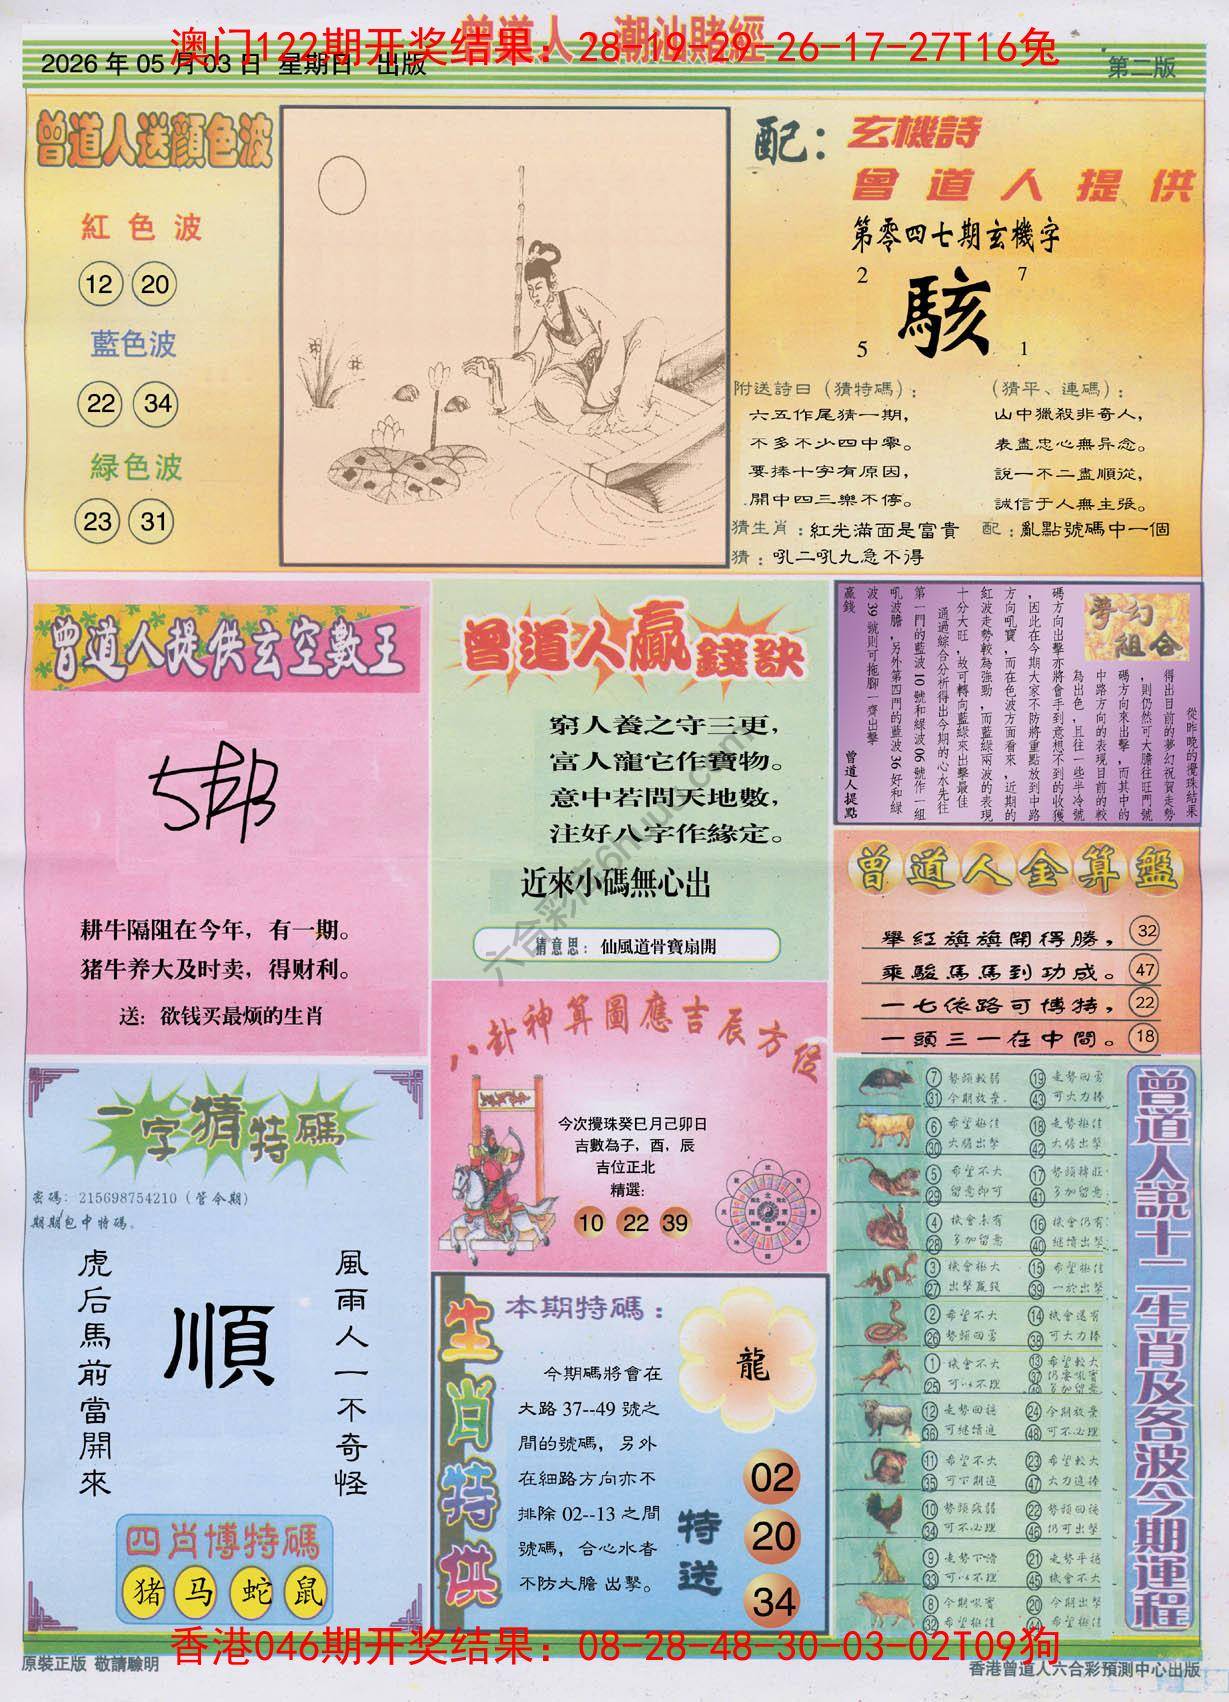 曾道人 潮汕賭經
澳门122期开奖结果：28-19-29-26-17-27T16兔
2026 年 05 月 03 日 星期日 出版
第二版
曾道人送顏色波
紅色波
12 20
藍色波
22 34
緑色波
23 31
配：玄機詩
曾道人提供
第零四七期玄機字
2 7
駭
5 1
附送詩曰（猜特碼）：
六五作尾猜一期，
不多不少四中零。
要捧十字有原因，
開中四三樂不停。
（猜平、連碼）：
山中獵殺非奇人，
表盡忠心無异念。
說一不二盡順從，
誠信于人無主張。
猜生肖：紅光滿面是富貴
配：亂點號碼中一個
猜：吼二吼九急不得
曾道人提供玄空數王
耕牛隔阻在今年，有一期。
猪牛养大及时卖，得财利。
送：欲钱买最烦的生肖
曾道人贏錢訣
窮人養之守三更，
富人寵它作寶物。
意中若問天地數，
注好八字作緣定。
近來小碼無心出
猜意思：仙風道骨寶扇開
夢幻組合
從昨晚的攪珠結果
得出目前的夢幻祝賀走勢
，則仍然可大膽往旺門號
碼方向來出擊，而其中的
中路方向的表現目前的較
為出色，且往一些半冷號
碼方向出擊亦將會手到意想不到的收獲
，因此在今期大家不防將重點放到中路
方向吼寶，而在色波方面看來，近期的
紅波走勢較為強勁，而藍綠兩波的表現
十分大旺，故可轉向藍綠來出擊最佳
通過綜合分析得出今期的心水先往
第一門的藍波 10 號和緑波 06 號作一組
吼波膽，另外第四門的藍波 36 好和緑
波 39 號則可拖腳一齊出擊
贏錢
曾道人提點
曾道人金算盤
舉紅旗旗開得勝， 32
乘駿馬馬到功成。 47
一七依路可博特， 22
一頭三一在中間。 18
一字猜特碼
密碼：215698754210（管今期）
期期包中特碼。
風雨人一不奇怪
順
虎后馬前當開來
四肖博特碼
猪 马 蛇 鼠
八卦神算圖應吉辰方位
今次攪珠癸巳月己卯日
吉數為子，酉，辰
吉位正北
精選：
10 22 39
生肖特供
本期特碼：
龍
今期碼將會在
大路 37--49 號之
間的號碼，另外
在細路方向亦不
排除 02--13 之間
號碼，合心水者
不防大膽 出擊。
特送
02
20
34
曾道人說十二生肖及各波今期運程
⑦ 勢頭較弱 ⑲ 走勢回勇
㉛ 今期放棄 ㊸ 可大力捧
⑥ 希望極佳 ⑱ 走勢極佳
㉚ 大膽出擊 ㊷ 大膽出擊
⑤ 希望不大 ⑰ 勢頭轉旺
㉙ 留意即可 ㊶ 多加留意
④ 機會未有 ⑯ 機會仍有
㉘ 多加留意 ㊵ 繼續出擊
③ 機會極大 ⑮ 希望極佳
㉗ 出擊贏錢 ㊴ 一於出擊
② 希望不大 ⑭ 機會還有
㉖ 勢頭回勇 ㊳ 可大力捧
① 機會不大 ⑬ 希望較大
㉕ 可以不理 ㊲ 仍要吼實
多加留意
⑫ 走勢回穩 ㉔ 今期放棄
㊱ 可繼續追 ㊽ 可不必理
⑪ 希望不大 ㉓ 希望較大
㉟ 可下期追 ㊼ 大力追捧
⑩ 勢頭疲弱 ㉒ 勢頭回穩
㉞ 可不必理 ㊻ 仍可出擊
⑨ 走勢下滑 ㉑ 走勢平穩
㉝ 可以不理 ㊺ 機會不大
⑧ 今期吼實 ⑳ 今期出擊
㉜ 希望極佳 ㊹ 希望極佳
六合彩库6huu.com
香港046期开奖结果：08-28-48-30-03-02T09狗
原裝正版 敬請驗明
香港曾道人六合彩預測中心出版